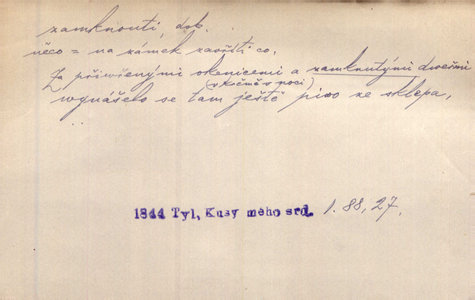 zamknouti, dok.
něco = na zámek zavříti co.
Za přivřenými okenicemi a zamknutými dveřmi
(v krčmě v noci)
wynášelo se tam ještě pivo ze sklepa,
1844 Tyl, Kusy mého srd. 1. 88, 27.